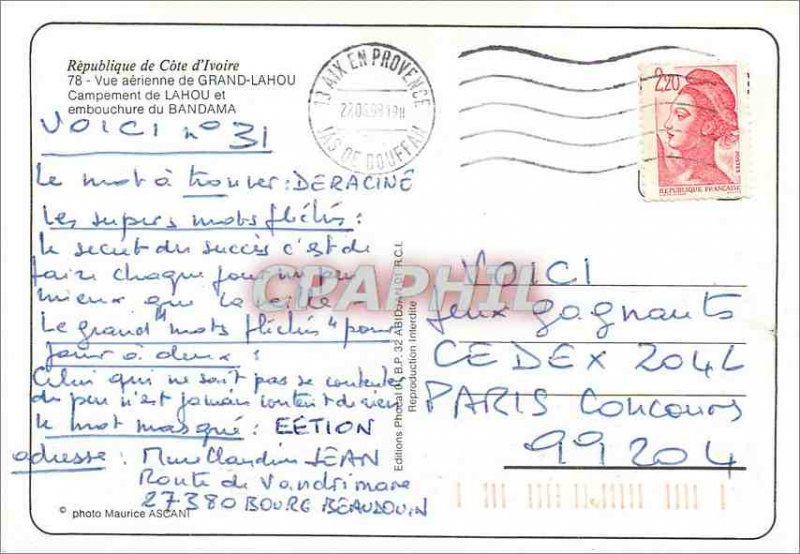 République de Côte d'Ivoire
78 - Vue aérienne de GRAND-LAHOU
Campement de LAHOU et
embouchure du BANDAMA
VOICI n° 31
Le mot à trouver : DERACINÉ
Les supers mots fléchés :
le secret du succès c'est de
faire chaque jour un peu
mieux que la veille -
Le grand "mots fléchés" pour
jouer à deux :
Celui qui ne sait pas se contenter
du peu n'est jamais content de rien
le mot masqué : EÉTION
adresse : Mme Claudine JEAN
Route de Vandrimare
27380 BOURG BEAUDOUIN
© photo Maurice ASCANI
Editions Phocal 01 B.P. 32 ABIDJAN 01 R.C.I.
Reproduction Interdite
13 AIX EN PROVENCE
JAS DE BOUFFAN
2,20
POSTES
REPUBLIQUE FRANÇAISE
VOICI
Jeux gagnants
CEDEX 2042
PARIS CONCOURS
99204
CPAPHIL